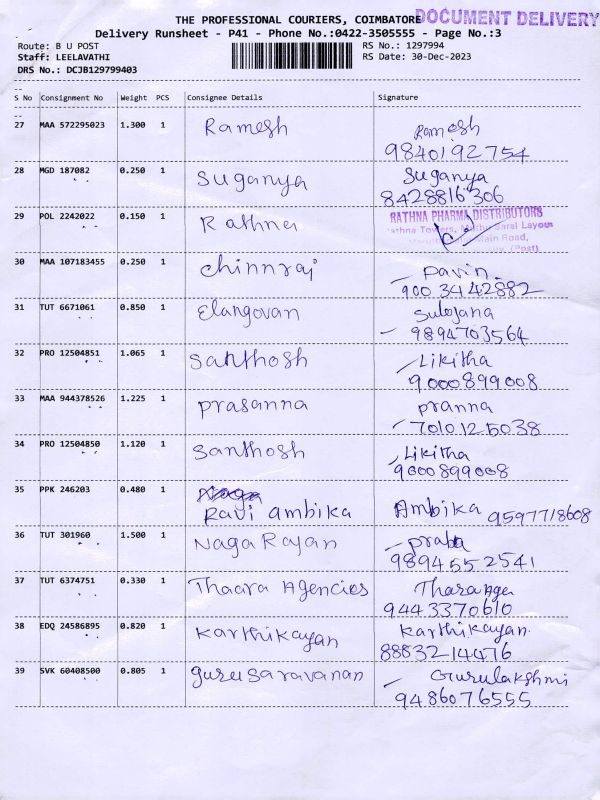 THE PROFESSIONAL COURIERS, COIMBATORE DOCUMENT DELIVERY
Delivery Runsheet - P41 - Phone No.:0422-3505555 - Page No.:3
Route: B U POST RS No.: 1297994
Staff: LEELAVATHI RS Date: 30-Dec-2023
DRS No.: DCJB129799403
S No Consignment No Weight PCS Consignee Details Signature
27 MAA 572295023 1.300 1 Ramesh Ramesh
9840192754
28 MGD 187082 0.250 1 Suganya Suganya
8428816306
29 POL 2242022 0.150 1 Rathna RATHNA PHARMA DISTRIBUTORS
Main Road,
(Post)
30 MAA 107183455 0.250 1 Chinnraj Pavin
9003442882
31 TUT 6671061 0.850 1 Elangovan Sulojana
9894703564
32 PRO 12504851 1.065 1 Santhosh Likitha
9000899008
33 MAA 944378526 1.225 1 prasanna pranna
7010125038
34 PRO 12504850 1.120 1 Santhosh Likitha
9000899008
35 PPK 246203 0.480 1 Naga
Ravi ambika Ambika 9597718608
36 TUT 301960 1.500 1 Naga Rajan praba
9894552541
37 TUT 6374751 0.330 1 Thaara Agencies Tharanga
9443370610
38 EDQ 24586895 0.820 1 Karthikayan Karthikayan
88832-14476
39 SVK 60408500 0.805 1 gurusaravanan Gurulakshmi
9486076555